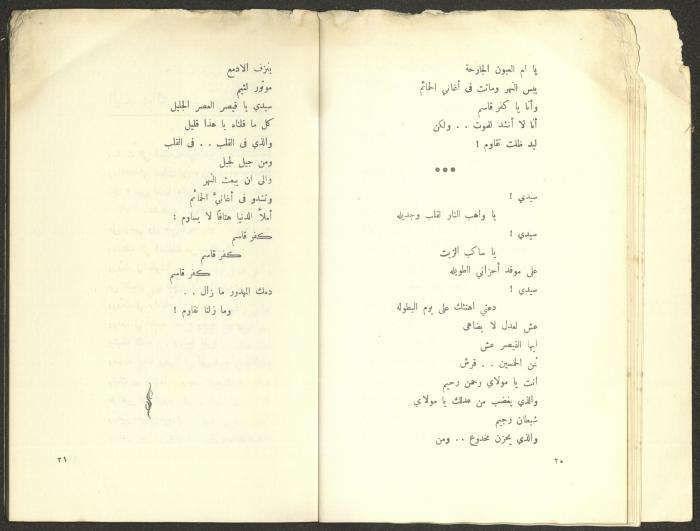 يا ام العيون الجارحة
يبس النهر وماتت فى أغاني الحمائم
وأنا يا كفر قاسم
أنا لا أنشد للموت . . ولكن
ليد ظلت تقاوم !
•••
سيدي !
يا واهب النار لقلب وجديله
سيدي !
يا ساكب الزيت
على موقد أحزاني الطويله
سيدي !
دعني اهنئك على يوم البطوله
عش لعدل لا يضاهى
ايها القيصر عش
ثمن الخمسين . . قرش
انت يا مولاي رحمن رحيم
والذي يغضب من عدلك يا مولاي
شيطان رجيم
والذي يحزن مخدوع . . ومن
٢٠
ينزف الادمع
موتور لئيم
سيدي يا قيصر العصر الجليل
كل ما قلناه يا هذا قليل
والذي فى القلب . . فى القلب
ومن جيل لجيل
والى ان يبعث النهر
وتشدو فى أغانيَّ الحمائم
أملأ الدنيا هتافا لا يساوم :
كفر قاسم
كفر قاسم
كفر قاسم
دمك المهدور ما زال . .
وما زلنا نقاوم !
٢١